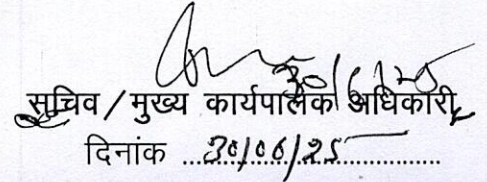 30/6/25
सचिव / मुख्य कार्यपालक अधिकारी
दिनांक ...30/06/25...................